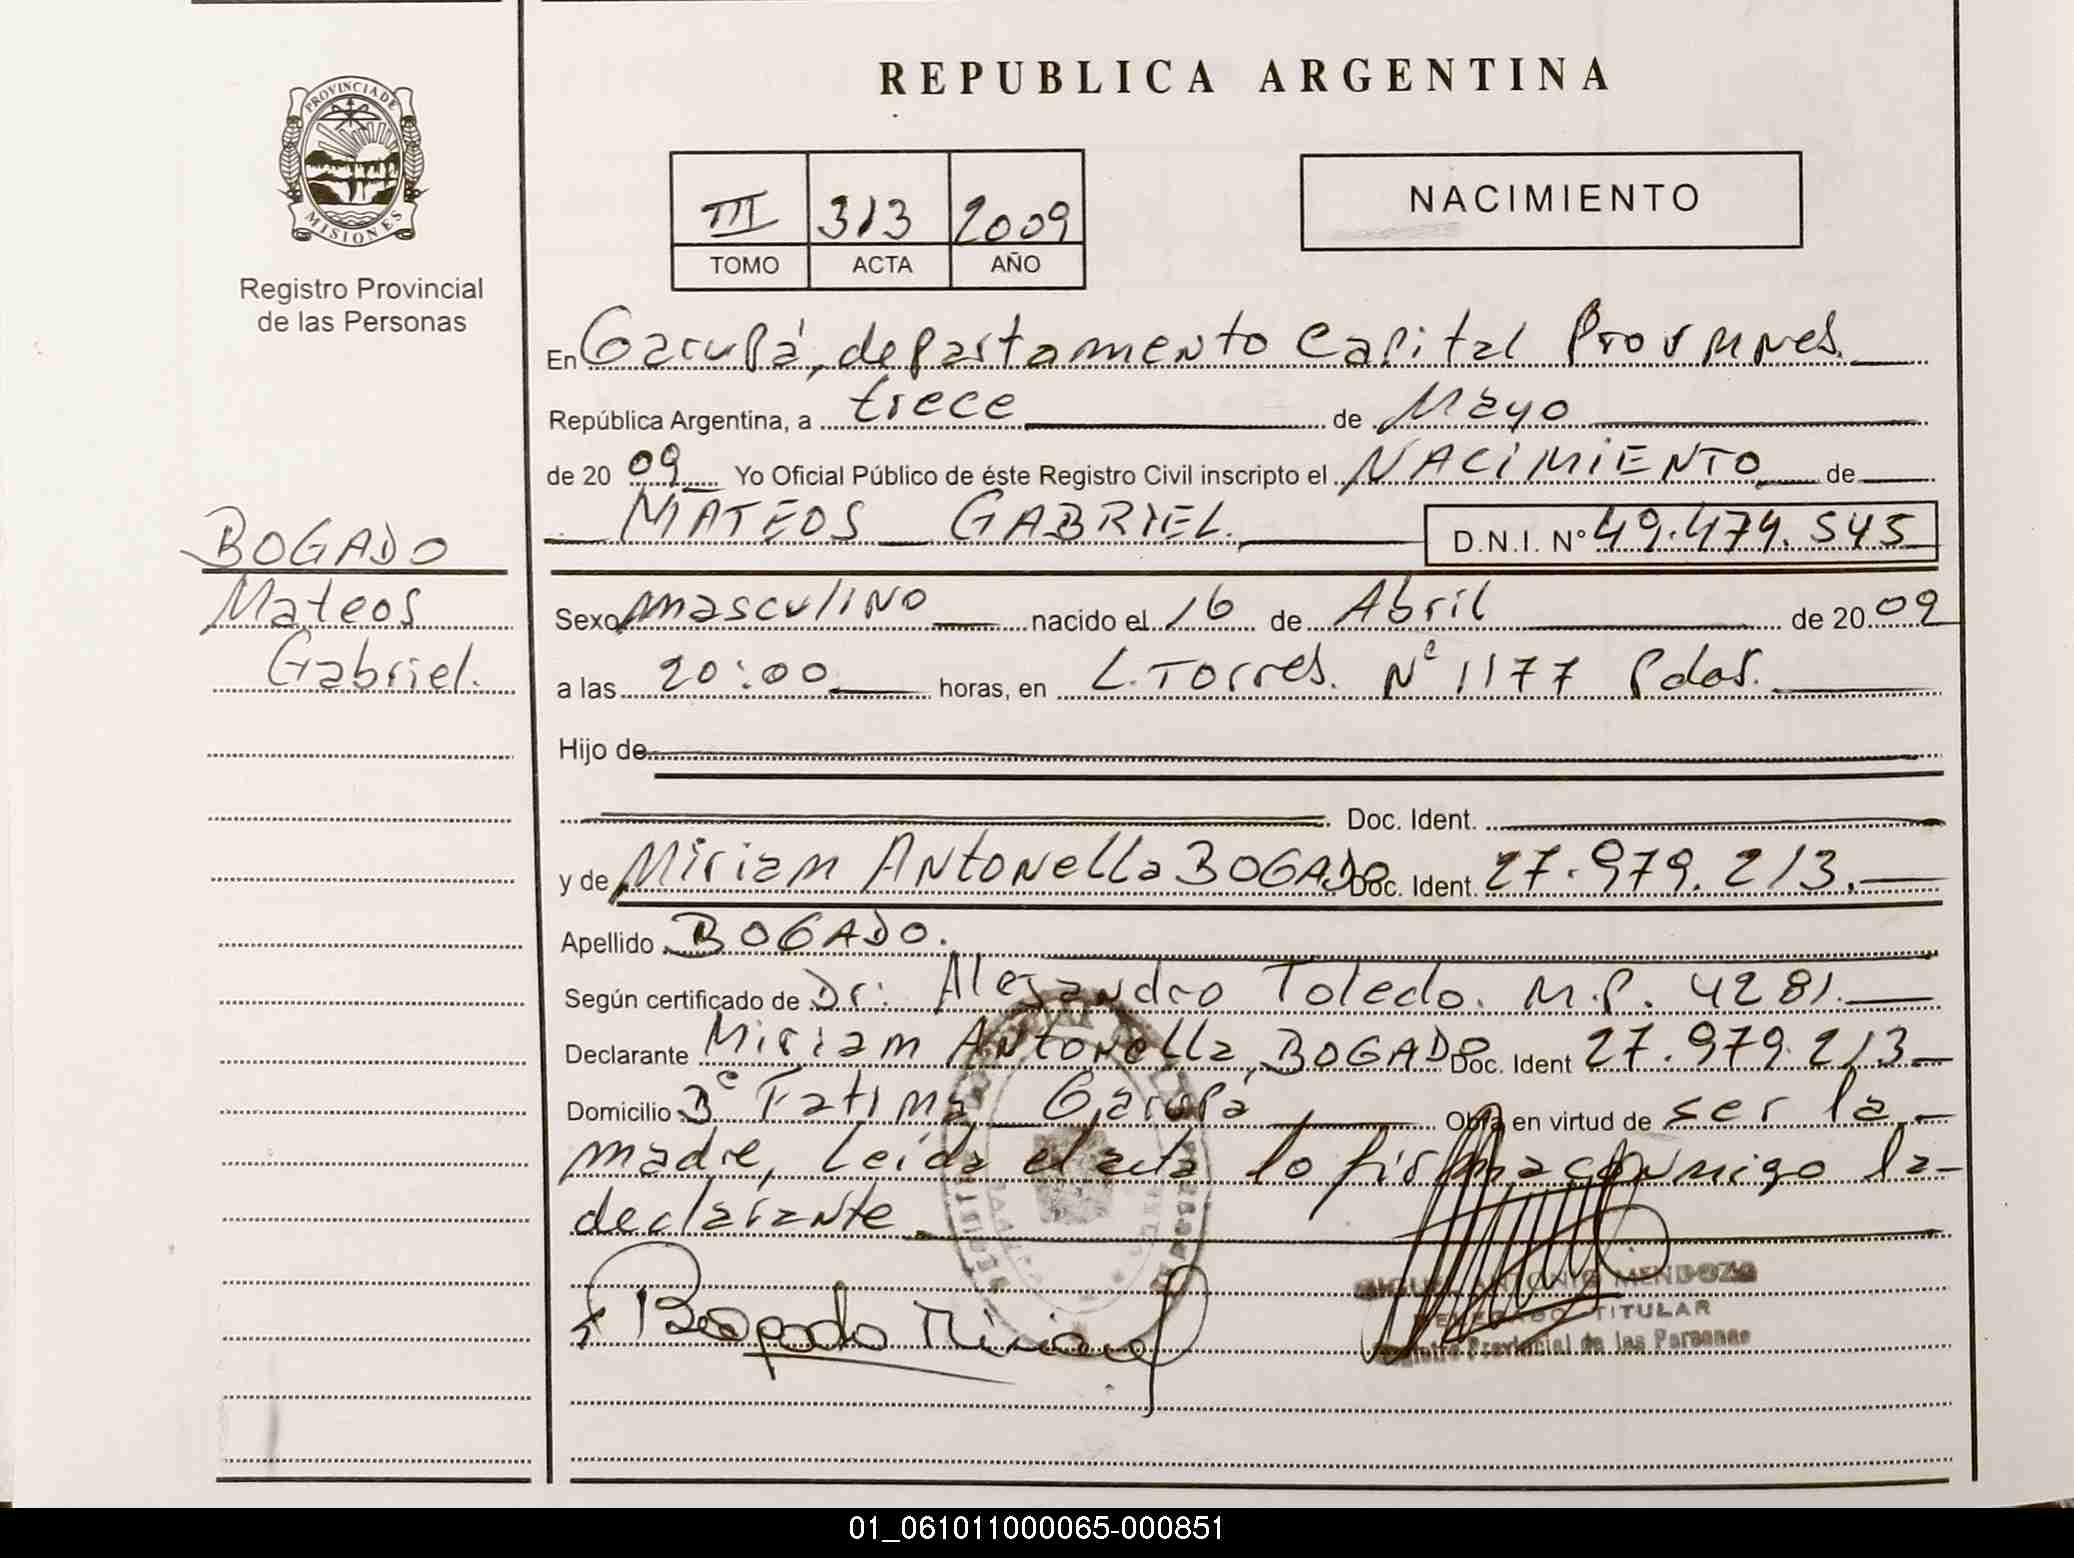 REPUBLICA ARGENTINA
PROVINCIA DE
MISIONES
Registro Provincial
de las Personas
III 313 2009
TOMO ACTA AÑO
NACIMIENTO
En Garupá, departamento Capital Prov
República Argentina, a trece de Mayo
de 20 09 Yo Oficial Público de éste Registro Civil inscripto el NACIMIENTO de
MATEOS GABRIEL. D.N.I. N° 49.474.545
BOGADO
Mateos
Gabriel.
Sexo masculino nacido el 16 de Abril de 20 09
a las 20:00 horas, en L. Torres. N° 1177 Pdas.
Hijo de
Doc. Ident.
y de Miriam Antonella BOGADO Doc. Ident. 27.979.213.
Apellido BOGADO.
Según certificado de Dr. Alejandro Toledo. M.P. 4281.
Declarante Miriam Antonella BOGADO Doc. Ident 27.979.213
Domicilio B° Fatima Garupá Obra en virtud de ser la
madre, Leída el acta lo firma conmigo la
declarante
Bogado Miriam
ANTONIO MENDOZA
DELEGADO TITULAR
Registro Provincial de las Personas
01_061011000065-000851